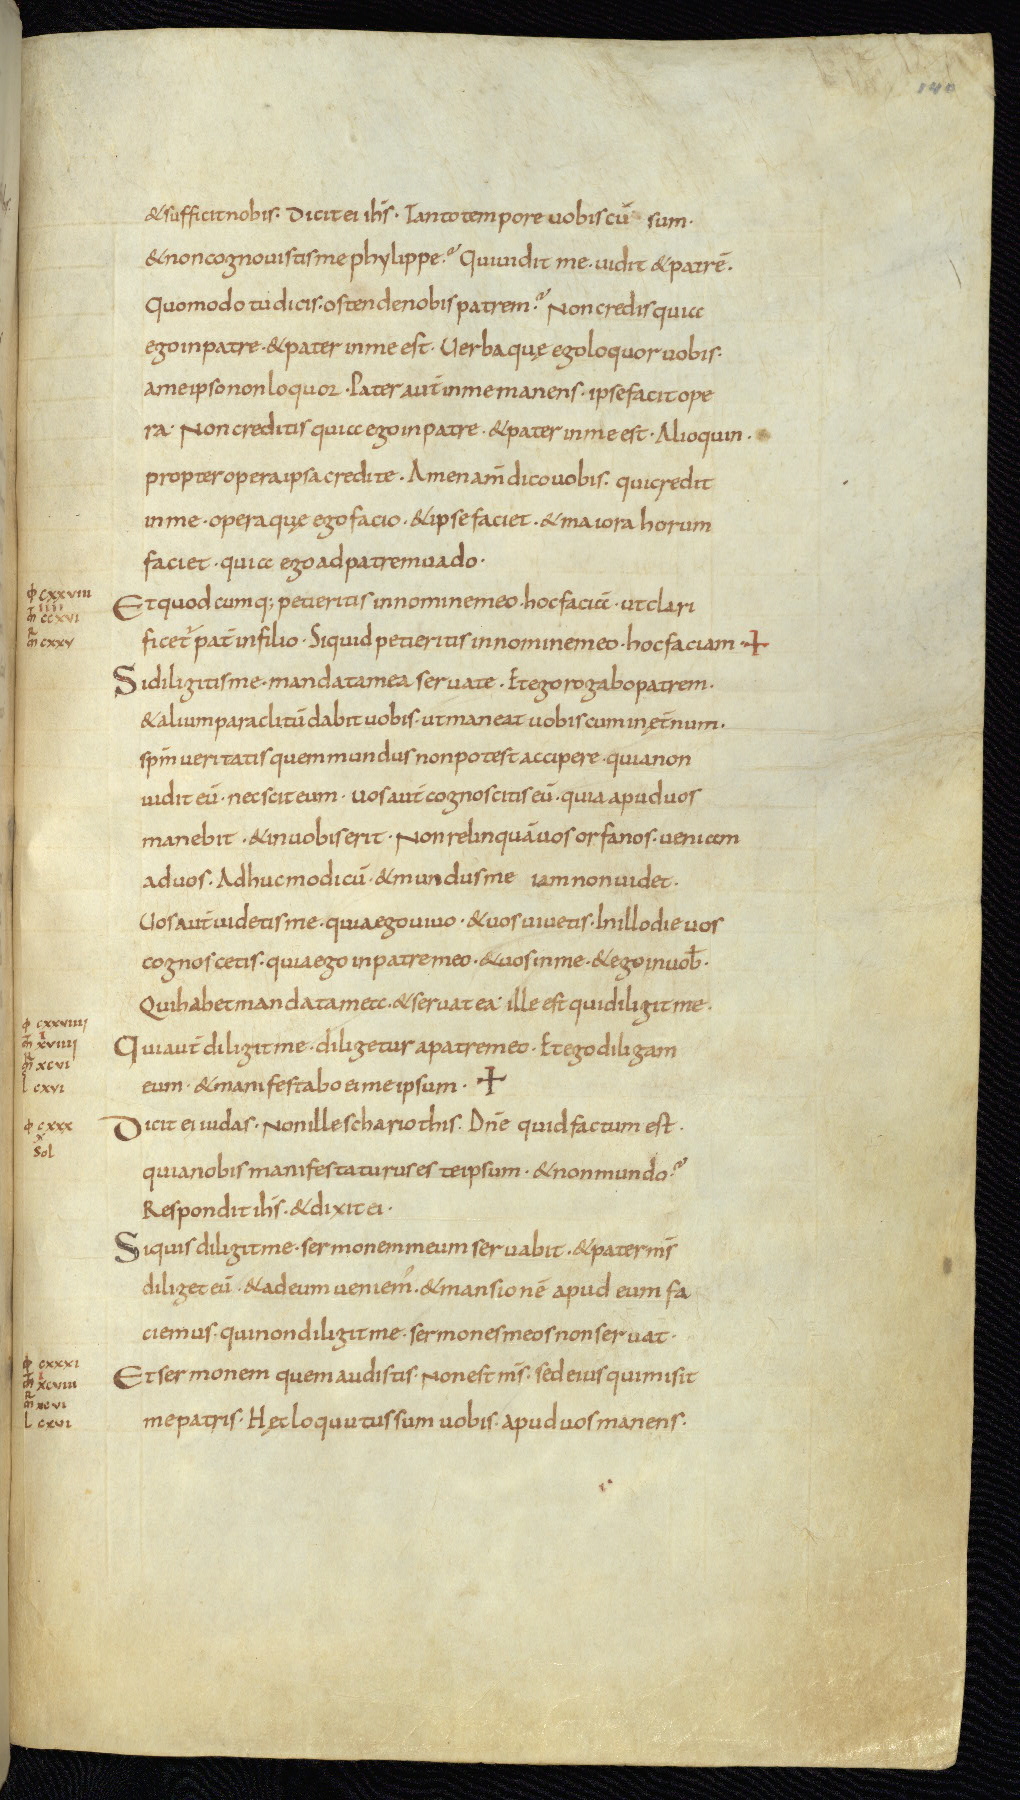 140
& sufficit nobis. Dicit ei ihs̄. Tanto tempore uobiscū sum.
& non cognouistis me phylippe? Qui uidit me. uidit & patrē.
Quomodo tu dicis. ostende nobis patrem? Non credis quia
ego in patre. & pater in me est. Uerba quę ego loquor uobis.
a me ipso non loquor. Pater aut̄ in me manens. ipse facit ope
ra. Non creditis quia ego in patre. & pater in me est. Alioquin.
propter opera ipsa credite. Amen am̄ dico uobis. qui credit
in me. opera quę ego facio. & ipse faciet. & maiora horum
faciet. quia ego ad patrem uado.
ф cxxviii
Et quodcumq; petieritis in nomine meo. hoc faciā. ut clari
m̄ ccxvi
m̄ cxxv
ficet᷑ pat̄ in filio. Si quid petieritis in nomine meo. hoc faciam. +
Si diligitis me. mandata mea seruate. Et ego rogabo patrem.
& alium paraclitū dabit uobis. ut maneat uobiscum in ęt̄num.
spm̄ ueritatis quem mundus non potest accipere. quia non
uidit eū. nec scit eum. uos aut̄ cognoscitis eū. quia apud uos
manebit. & in uobis erit. Non relinquā uos orfanos. ueniam
ad uos. Adhuc modicū. & mundus me iam non uidet.
Uos aut̄ uidetis me. quia ego uiuo. & uos uiuetis. In illo die uos
cognoscetis. quia ego in patre meo. & uos in me. & ego in uob̄.
Qui habet mandata mea. & seruat ea. ille est qui diligit me.
ф cxxviiii
m̄ xviiii
Qui aut̄ diligit me. diligetur a patre meo. Et ego diligam
m̄ xcvi
l cxvi
eum. & manifestabo ei me ipsum. +
ф cxxx
Dicit ei iudas. Non ille schariothis. Dn̄e quid factum est.
x
sol
quia nobis manifestaturus es te ipsum. & non mundo?
Respondit ihs̄. & dixit ei.
Si quis diligit me. sermonem meum seruabit. & pater ms̄
diliget eū. & ad eum ueniem᾽. & mansionē apud eum fa
ciemus. qui non diligit me. sermones meos non seruat.
ф cxxxi
Et sermonem quem audistis. Non est ms̄. sed eius qui misit
m̄ xcviii
m̄ xcvi
l cxvi
me patris. Hęc loquutus sum uobis. apud uos manens.